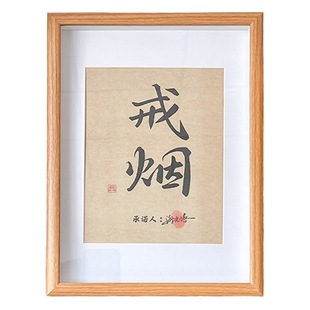 戒
烟
承诺人：